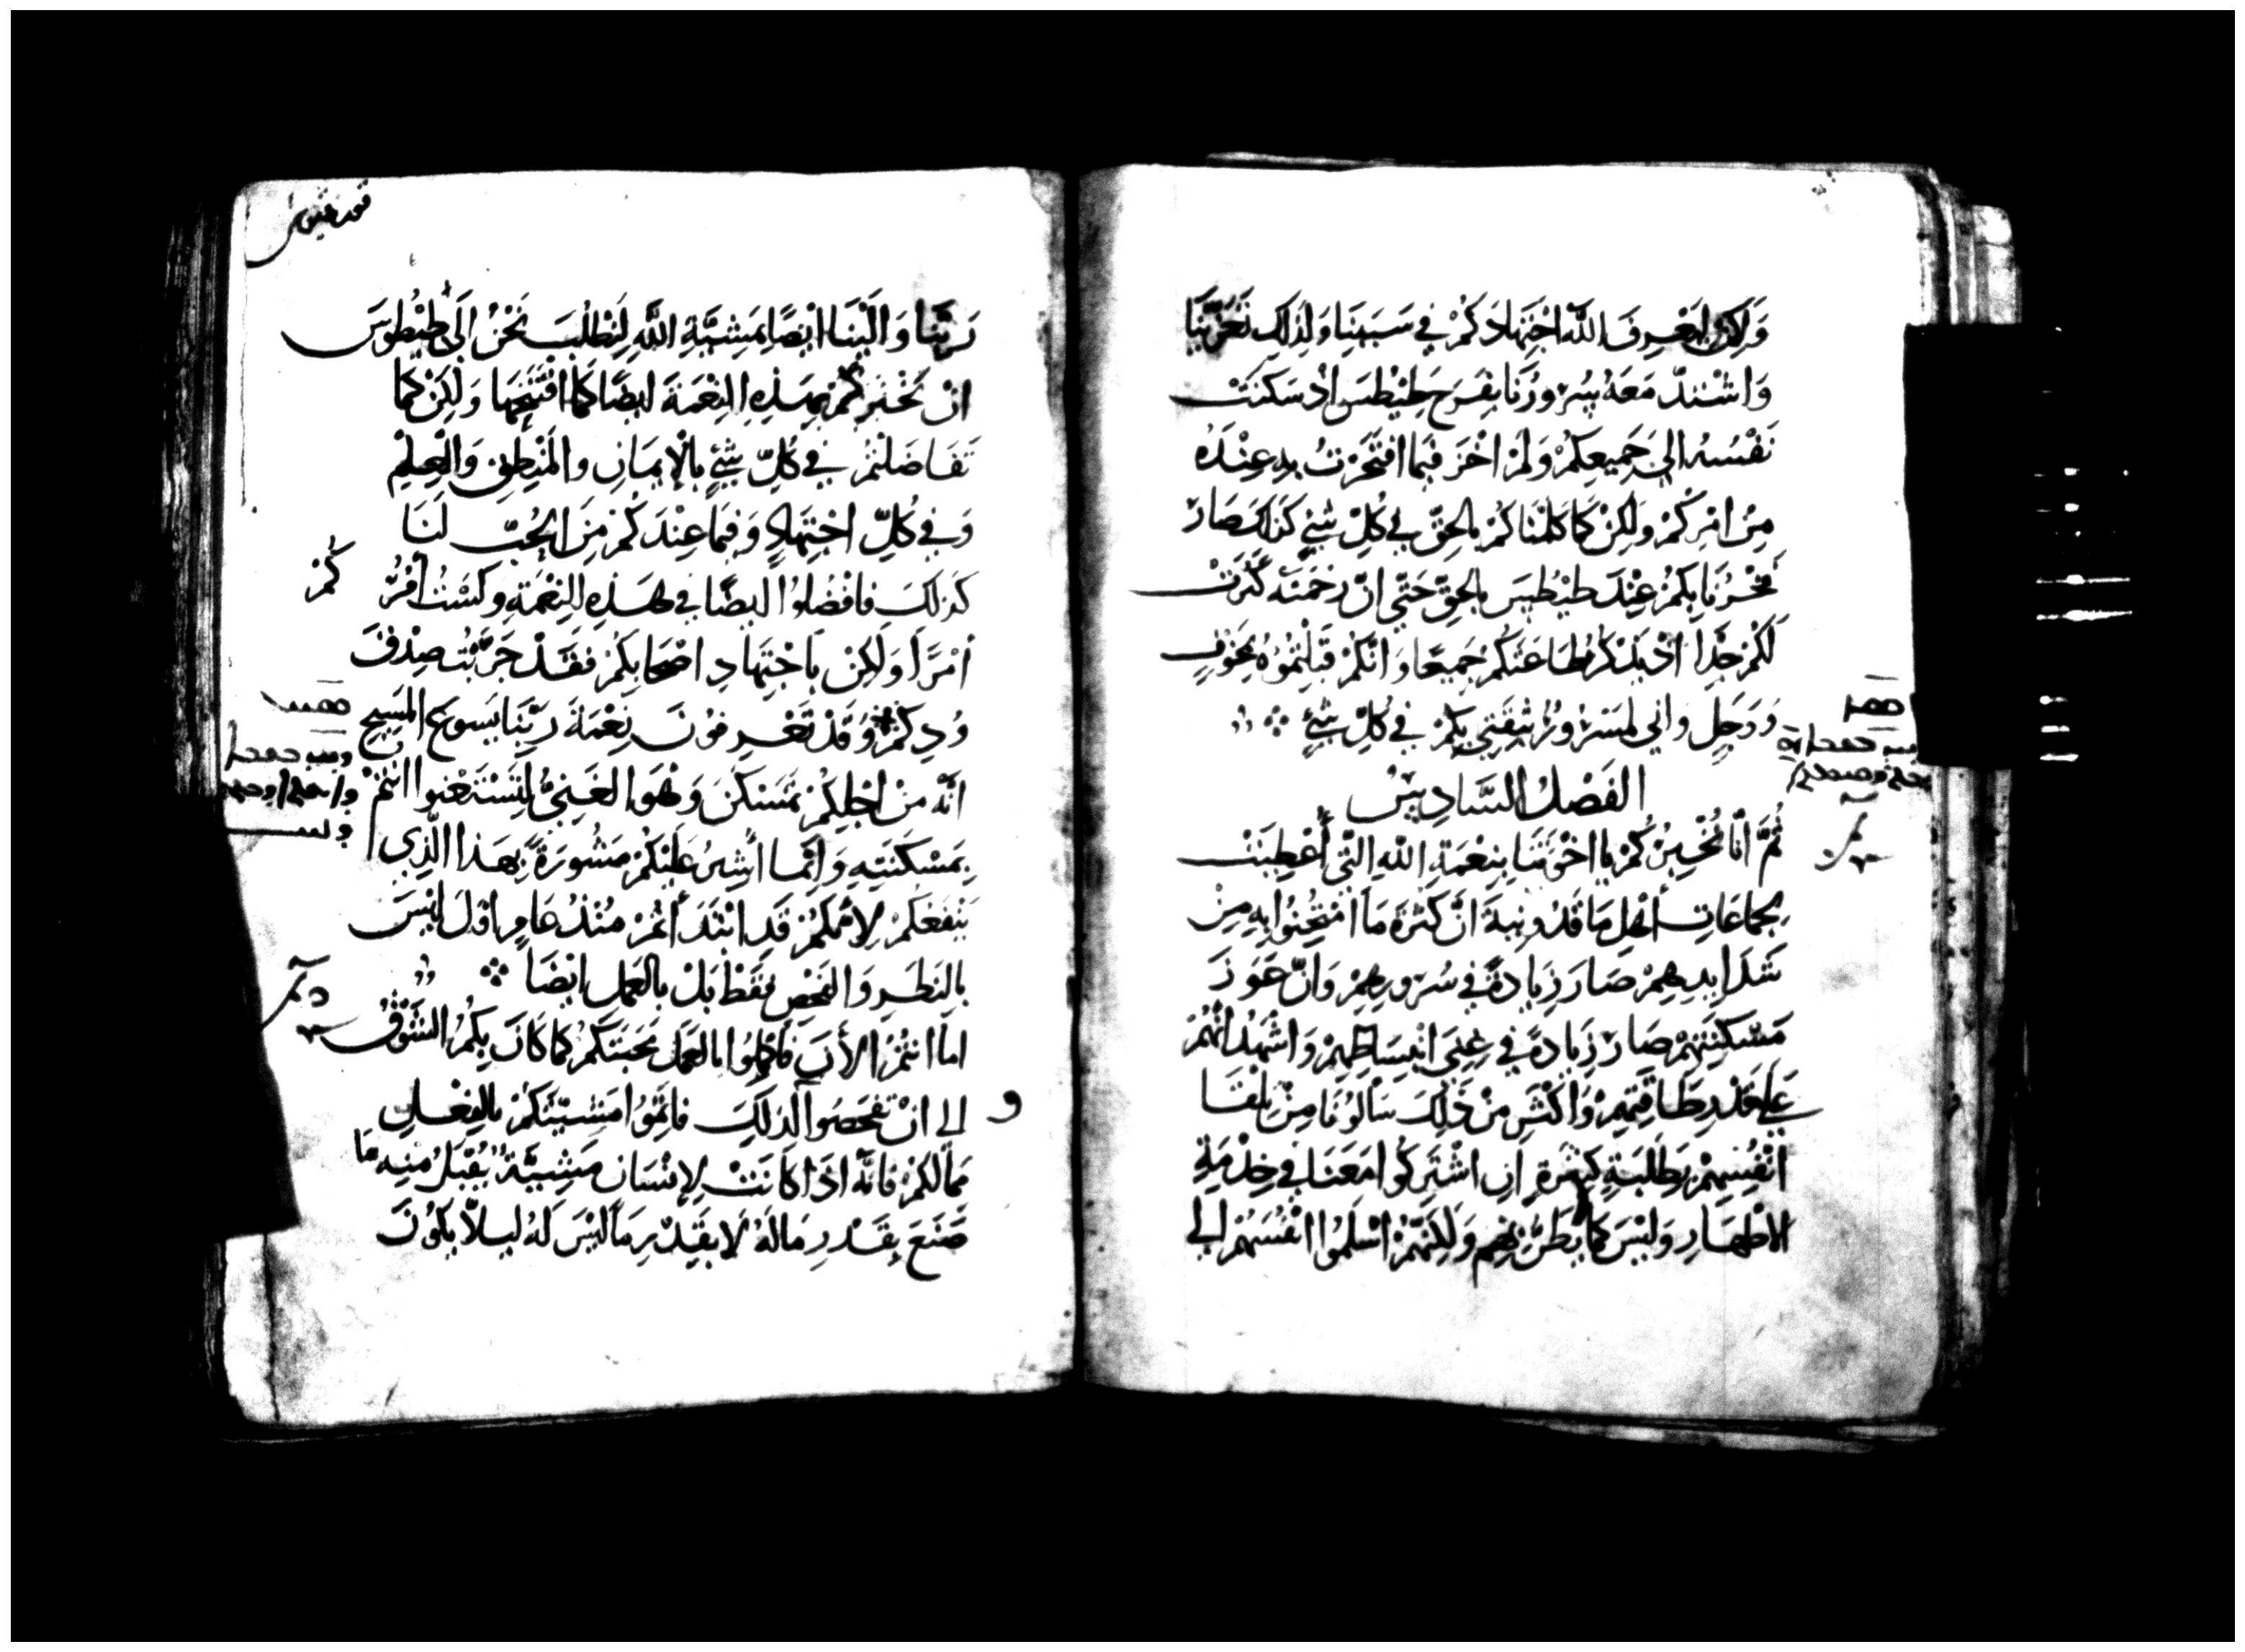 وَلَكِنْ لِيَعْرِفَ اللّهُ اجْتِهَادَكُمْ فِي سَبَبِنَا وَلِذَلِكَ تَعَزَّيْنَا
وَاشْتَدّ مَعَهُ سُرُورُنَا بِفَرَحِ طِيْطُسَ اذْ سَكَنَتْ
نَفْسُهُ الَى جَمِيعِكُمْ وَلَمْ اخْزَ فِيمَا افْتَخَرْتُ بِهِ عِنْدَهُ
مِنْ امْرِكُمْ وَلَكِنْ كَمَا كَلمْنَاكُمْ بِالحَقِّ فِي كُلِّ شَيْءٍ كَذَلِكَ صَارَ
فَخْرُنَا بِكُمْ عِنْدَ طِيْطُسَ بِالحَقِّ حَتَّى انّ رَحْمَتَهُ كَثُرَتْ
لَكُمْ جِدًّا اذْ يَذْكُرُ طَاعَتَكُمْ جَمِيعًا وَانّكُمْ قَبِلْتُمُوهُ بِخَوْفٍ
وَوَجَلٍ وَانِي لَمَسْرُورٌ بِثِقَتِي بِكُمْ فِي كُلِّ شَيْءٍ
الفَصْلُ السَّادِسُ
ثُمَّ انّا نُخْبِرُكُمْ يَا اخْوَتَنَا بِنِعْمَةِ اللّهِ الّتِي أُعْطِيَتْ
بِجَمَاعَاتِ أَهْلِ مَاقَدُونِيةَ انَّ كَثْرَةَ مَا امْتُحِنُوا بِهِ مِنْ
شَدَايِدِهِمْ صَارَ زِيَادةً فِي سُرُورِهِمْ وَانّ عَوَزَ
مَسْكَنَتِهِمْ صَارَ زِيَادةً فِي غِنَى انْبِسَاطِهِمْ وَاشْهَدُ انّهُمْ
عَلَى قَدْرِ طَاقَتِهِمْ وَاكْثَرَ مِنْ ذَلِكَ سَالُونَا مِنْ تِلْقَا
انْفُسِهِمْ بِطَلِبَةٍ كَثِيرَةٍ انِ اشْتَرِكُوا مَعَنَا فِي خِدْمَةِ
الاطْهَارِ وَلَيْسَ كَمَا يُظَنُّ بِهِم وَلَكِنَّهُمْ اسْلَمُوا انْفُسَهُمْ الَى
رَبِّنَا وَالَيْنَا ايْضًا بِمَشِيَّةِ اللَّهِ لِنَطْلُبَ نَحْنُ الَى طِيْطُوسَ
انْ يَخْبُرَكُمْ بِهَذِهِ النِعْمَةَ ايضًا كَمَا افْتَتَحَهَا وَلَكِنْ كَمَا
تَفَاضَلْتُمْ فِي كُلِّ شَيْءٍ بِالْإِيمَانِ وَالمَنْطِقِ وَالْعِلْمِ
وَفِي كُلِّ اجْتِهَادٍ وَفِيمَا عِنْدَكُمْ مِنَ الحُبِّ لَنَا
كَذلَكَ فَافْضُلُوا ايضًا فِي هَذِهِ النِعْمَةِ وَلَسْتُ آمُرُ
كُمْ
أمْرًا وَلَكِنْ بِاجْتِهَادِ اصْحَابِكُمْ فَقَدْ جَرَّبْتُ صِدْقَ
وُدِكُمْ وَقَدْ تَعْرِفُونَ نِعْمَةَ رَبِّنَا يَسوعَ المَسِيحِ
انَّه مِنْ اجْلِكُمْ تَمَسْكَنَ وَهُوَ الغَنِيُّ لِتَسْتَغْنوا انْتُمْ
بِمَسْكَنَتِهِ وَانَّمَا أُشِيرُ عَلَيْكُمْ مَشُورَةً بِهَذا الَّذِي
يَنْفَعُكُمْ لِانّكُمْ قَدِ ابْتَدَأْتُمْ مُنْذُ عَامٍ اوّلَ لَيْسَ
بِالنَظَرِ وَالفَحْصِ فَقَطْ بَلْ بِالعَمَلِ ايْضًا
اما انتُمْ الأنَ فَاكْمِلُوا بِالعَمَلِ مَحَبَتَكُمْ كَمَا كَانَ بِكُمُ الشَوْقُ
و
الى انْ تَفْحَصُوا لذَلِكَ فَاتِمُّوا مَشِيّتَكُمْ بِالفِعْلِ
مِمَّا لَكُمْ فَانّهُ اذَا كَانَتْ لِإنْسَانٍ مَشِيَّةٌ يُقْبَلُ مِنْهِ مَا
صَنَعَ بِقَدْرِ مَا لَهُ لَا بِقَدْرِ مَا لَيْسَ لَهُ لِيلّا يَكُونَ